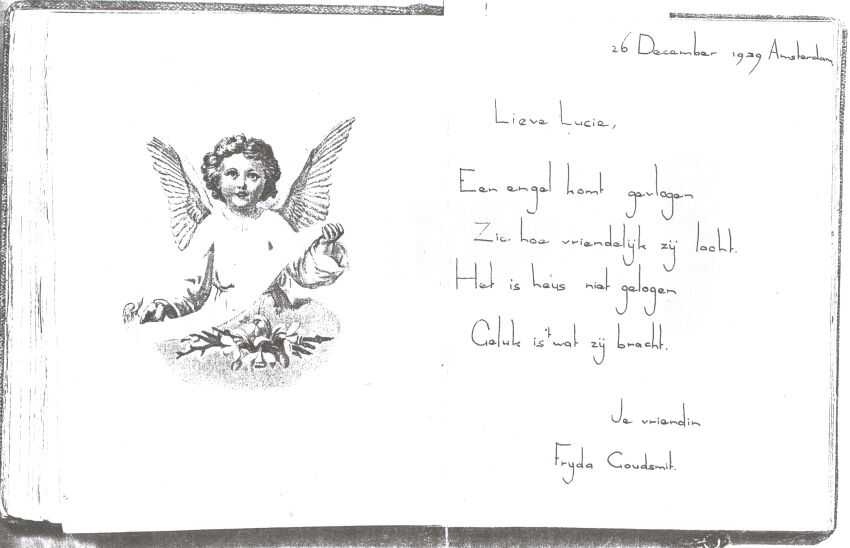 26 December 1939 Amsterdam
Lieve Lucie,
Een engel komt gevlogen
Zie hoe vriendelijk zij lacht.
Het is heus niet gelogen
Geluk is 't wat zij bracht.
Je vriendin
Fryda Goudsmit.